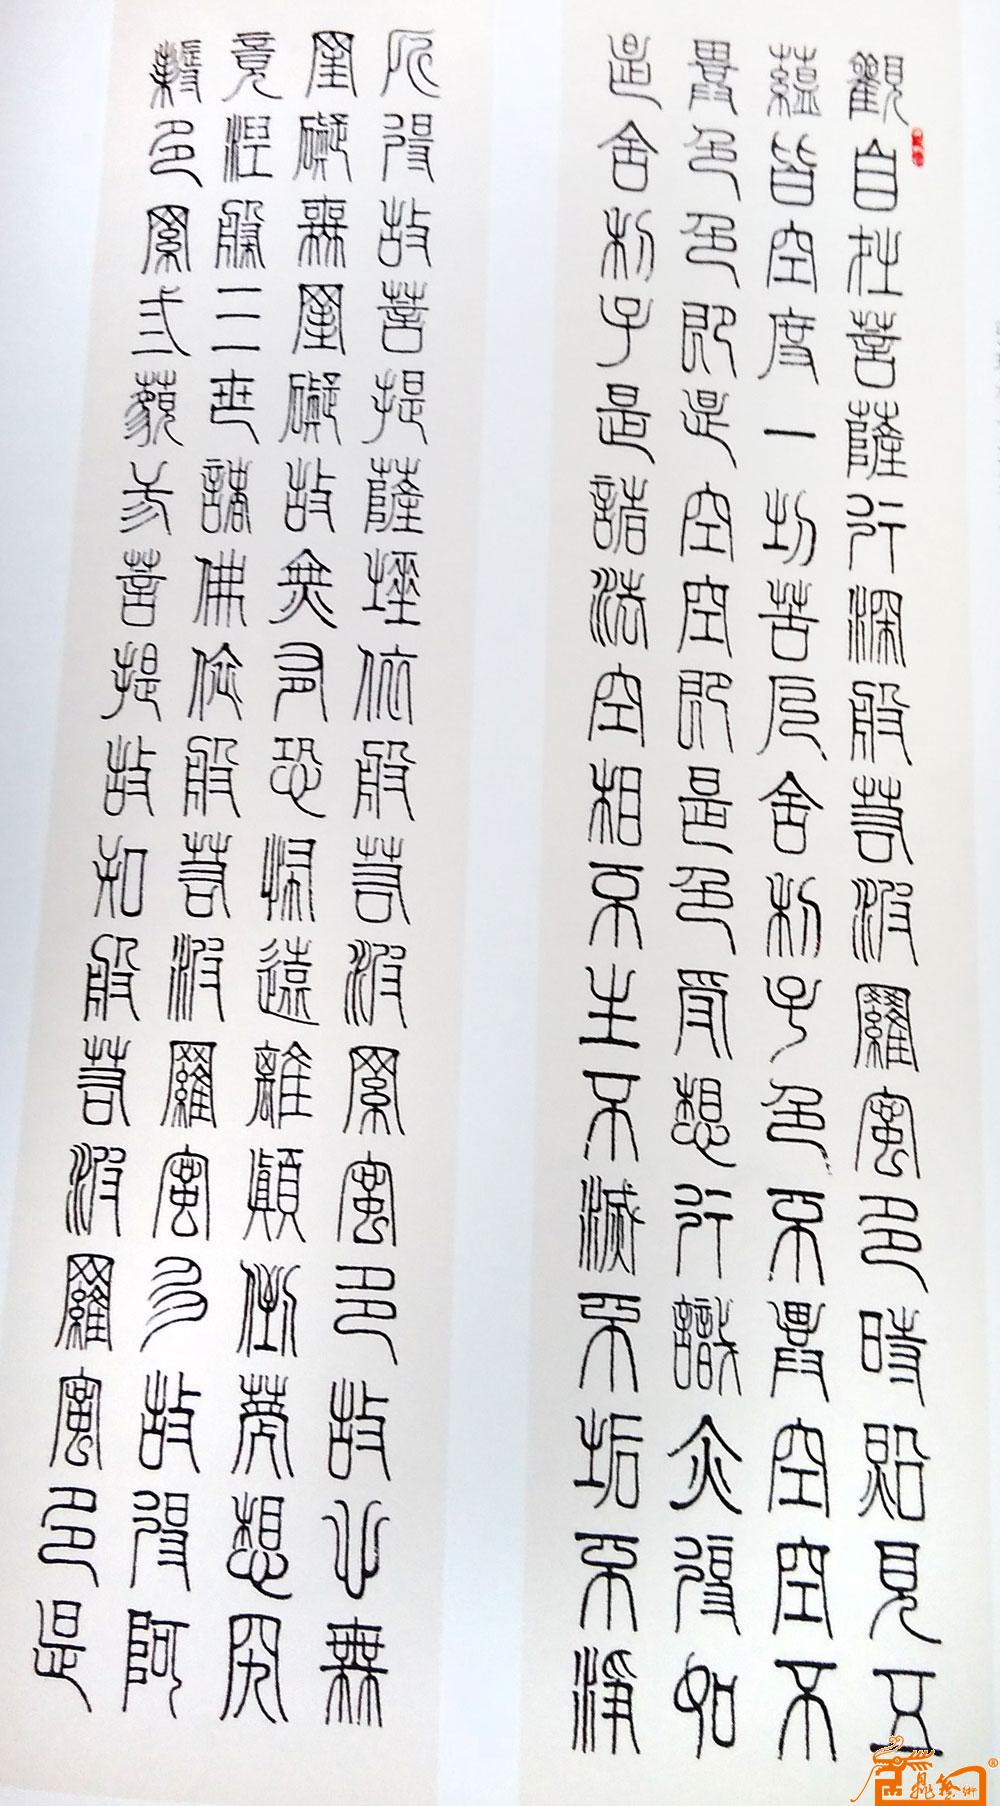 觀自在菩薩行深般若波羅蜜多時照見五
蘊皆空度一切苦厄舍利子色不異空空不
異色色即是空空即是色受想行識亦復如
是舍利子是諸法空相不生不滅不垢不淨
所得故菩提薩埵依般若波羅蜜多故心無
罣礙無罣礙故無有恐怖遠離顛倒夢想究
竟涅槃三世諸佛依般若波羅蜜多故得阿
耨多羅三藐三菩提故知般若波羅蜜多是